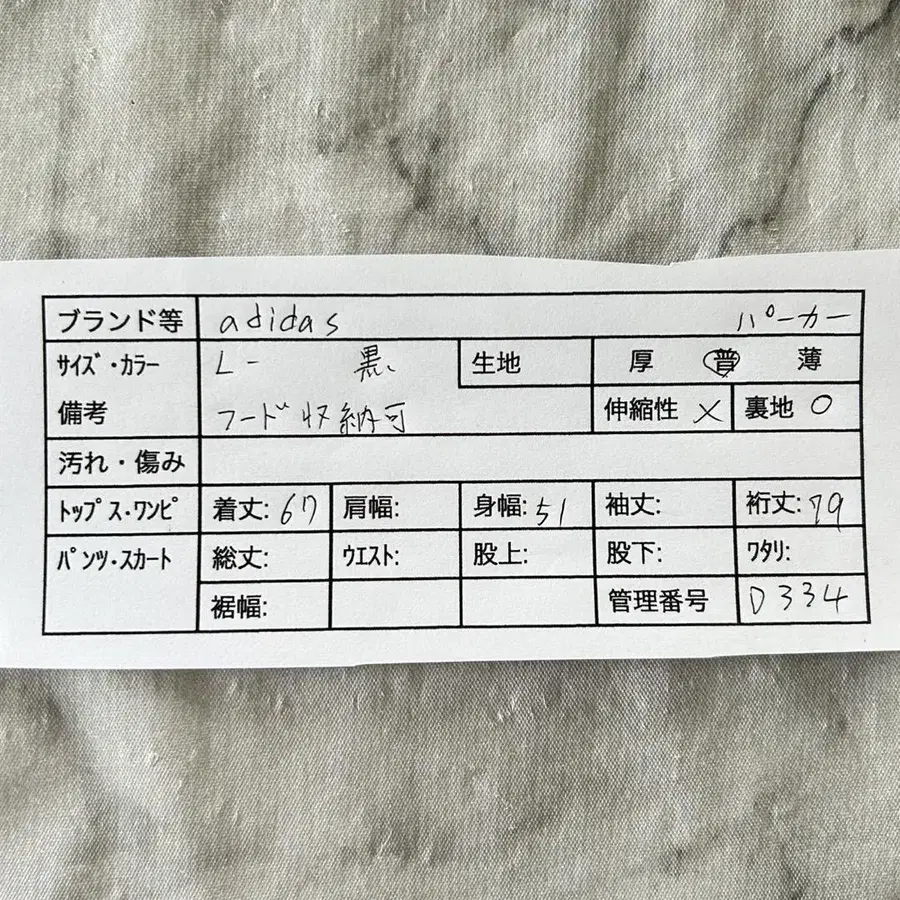 ブランド等 adidas パーカー
サイズ・カラー L- 黒 生地 厚 普 薄
備考 フード収納可 伸縮性 × 裏地 ○
汚れ・傷み
トップス・ワンピ 着丈: 67 肩幅: 身幅: 51 袖丈: 裄丈: 79
パンツ・スカート 総丈: ウエスト: 股上: 股下: ワタリ:
裾幅: 管理番号 D334